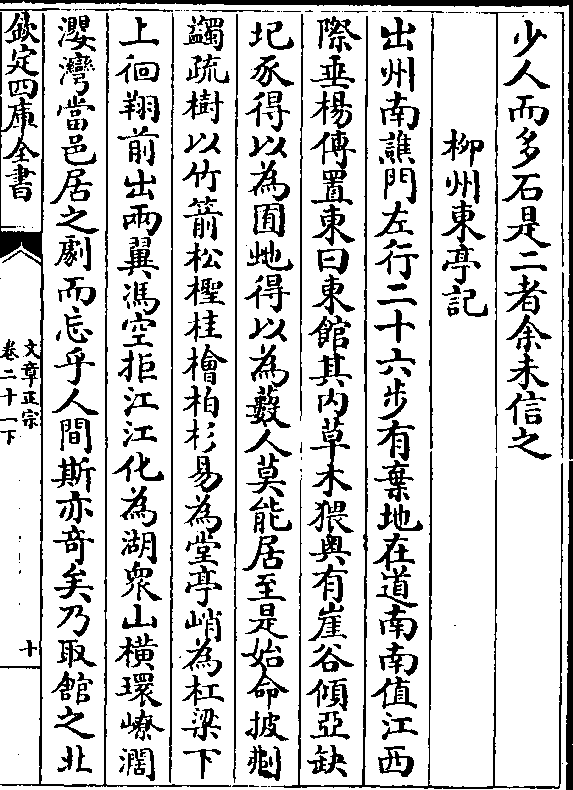 少人而多石是二者余未信之
柳州東亭記
出州南譙門左行二十六步有棄地在道南南值江西
際垂楊傳置東曰東館其内草木猥奥有崖谷傾亞缺
圮豕得以為囿虵得以為藪人莫能居至是始命披㓨
蠲疏樹以竹箭松檉桂檜柏杉易為堂亭峭為杠梁下
上徊翔前出兩翼馮空拒江江化為湖衆山橫環嶛濶
瀴灣當邑居之劇而忘乎人間斯亦竒矣乃取館之北
欽定四庫全書
文章正宗
卷二十一下
十